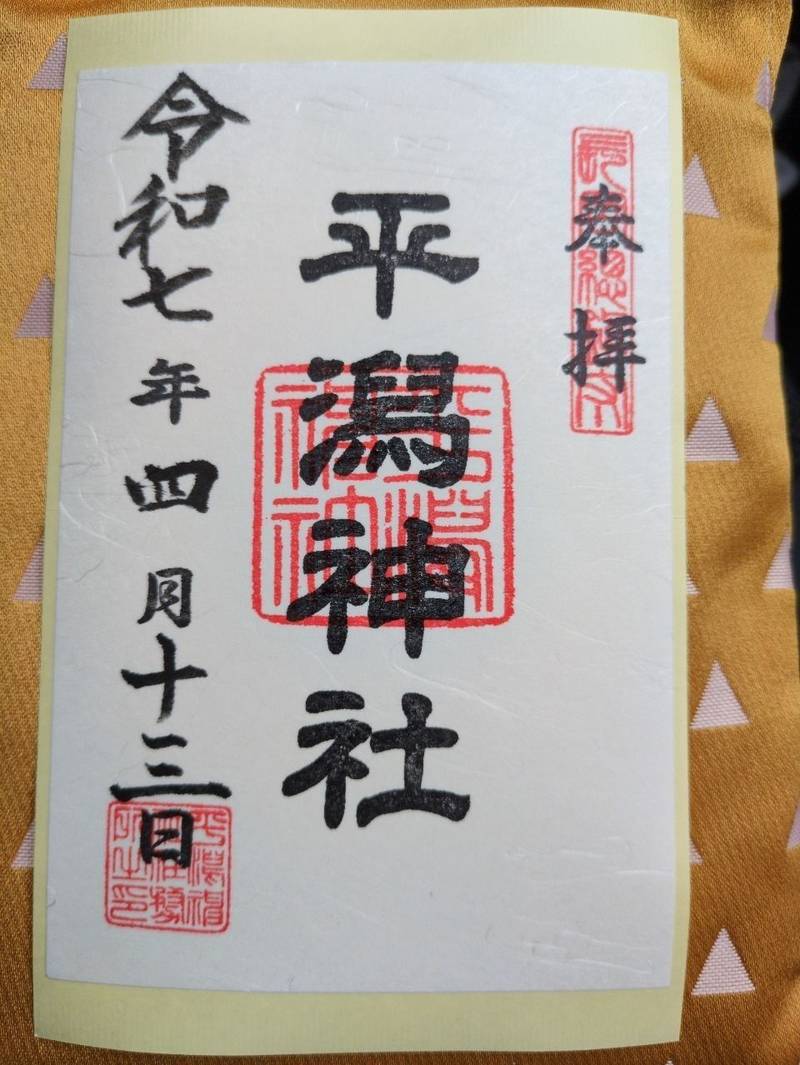 奉拝
平潟神社
令和七年四月十三日